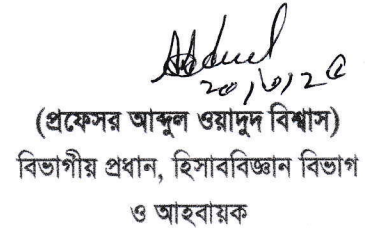 ২০/৩/২৫
(প্রফেসর আব্দুল ওয়াদুদ বিশ্বাস)
বিভাগীয় প্রধান, হিসাববিজ্ঞান বিভাগ
ও আহবায়ক